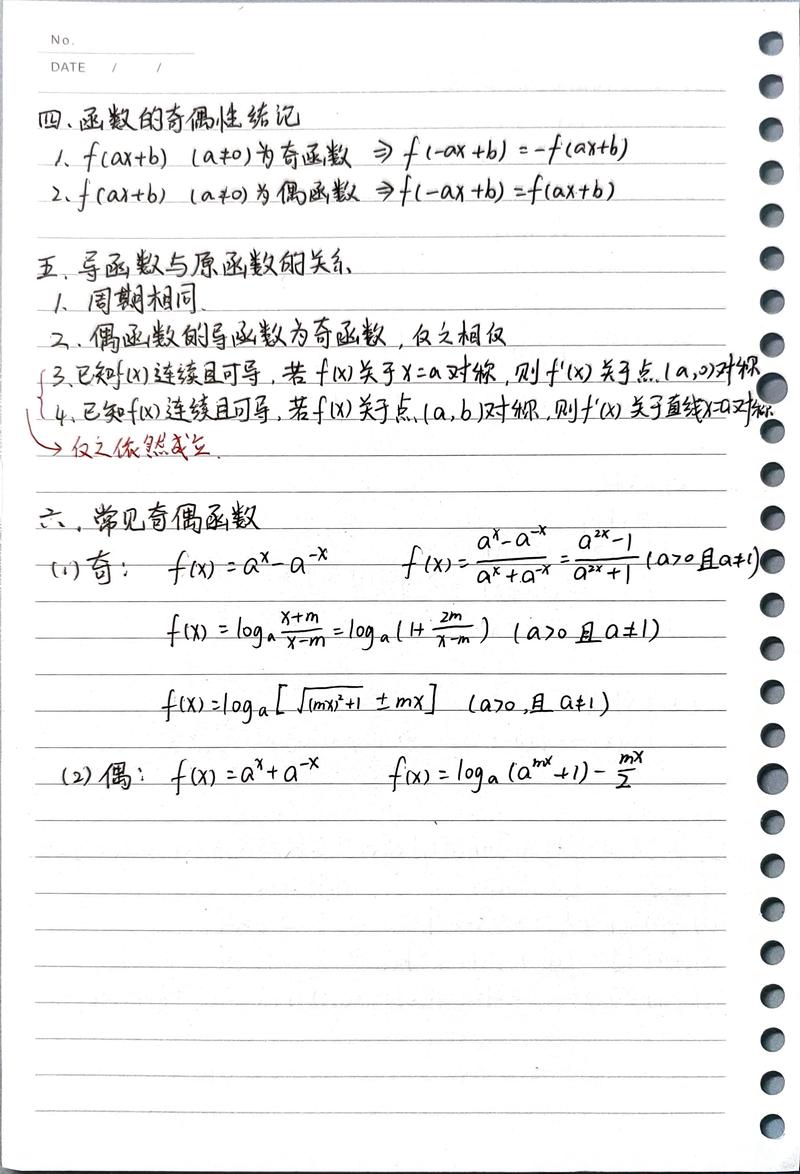 No.
DATE / /
四、函数的奇偶性结论
1、f(ax+b) (a≠0)为奇函数 ⇒ f(-ax+b) = -f(ax+b)
2、f(ax+b) (a≠0)为偶函数 ⇒ f(-ax+b) = f(ax+b)
五、导函数与原函数的关系
1、周期相同.
2、偶函数的导函数为奇函数,反之相反
3、已知f(x)连续且可导,若f(x)关于x=a对称,则f'(x)关于点(a,0)对称
4、已知f(x)连续且可导,若f(x)关于点(a,b)对称,则f'(x)关于直线x=a对称.
→反之依然成立.
六、常见奇偶函数
(1)奇: f(x)=a^x-a^{-x} f(x)=\frac{a^x-a^{-x}}{a^x+a^{-x}}=\frac{a^{2x}-1}{a^{2x}+1} (a>0且a≠1)
f(x)=log_a \frac{x+m}{x-m}=log_a(1+\frac{2m}{x-m}) (a>0 且 a≠1)
f(x)=log_a[\sqrt{(mx)^2+1} ± mx] (a>0,且 a≠1)
(2)偶: f(x)=a^x+a^{-x} f(x)=log_a(a^{mx}+1)-\frac{mx}{2}